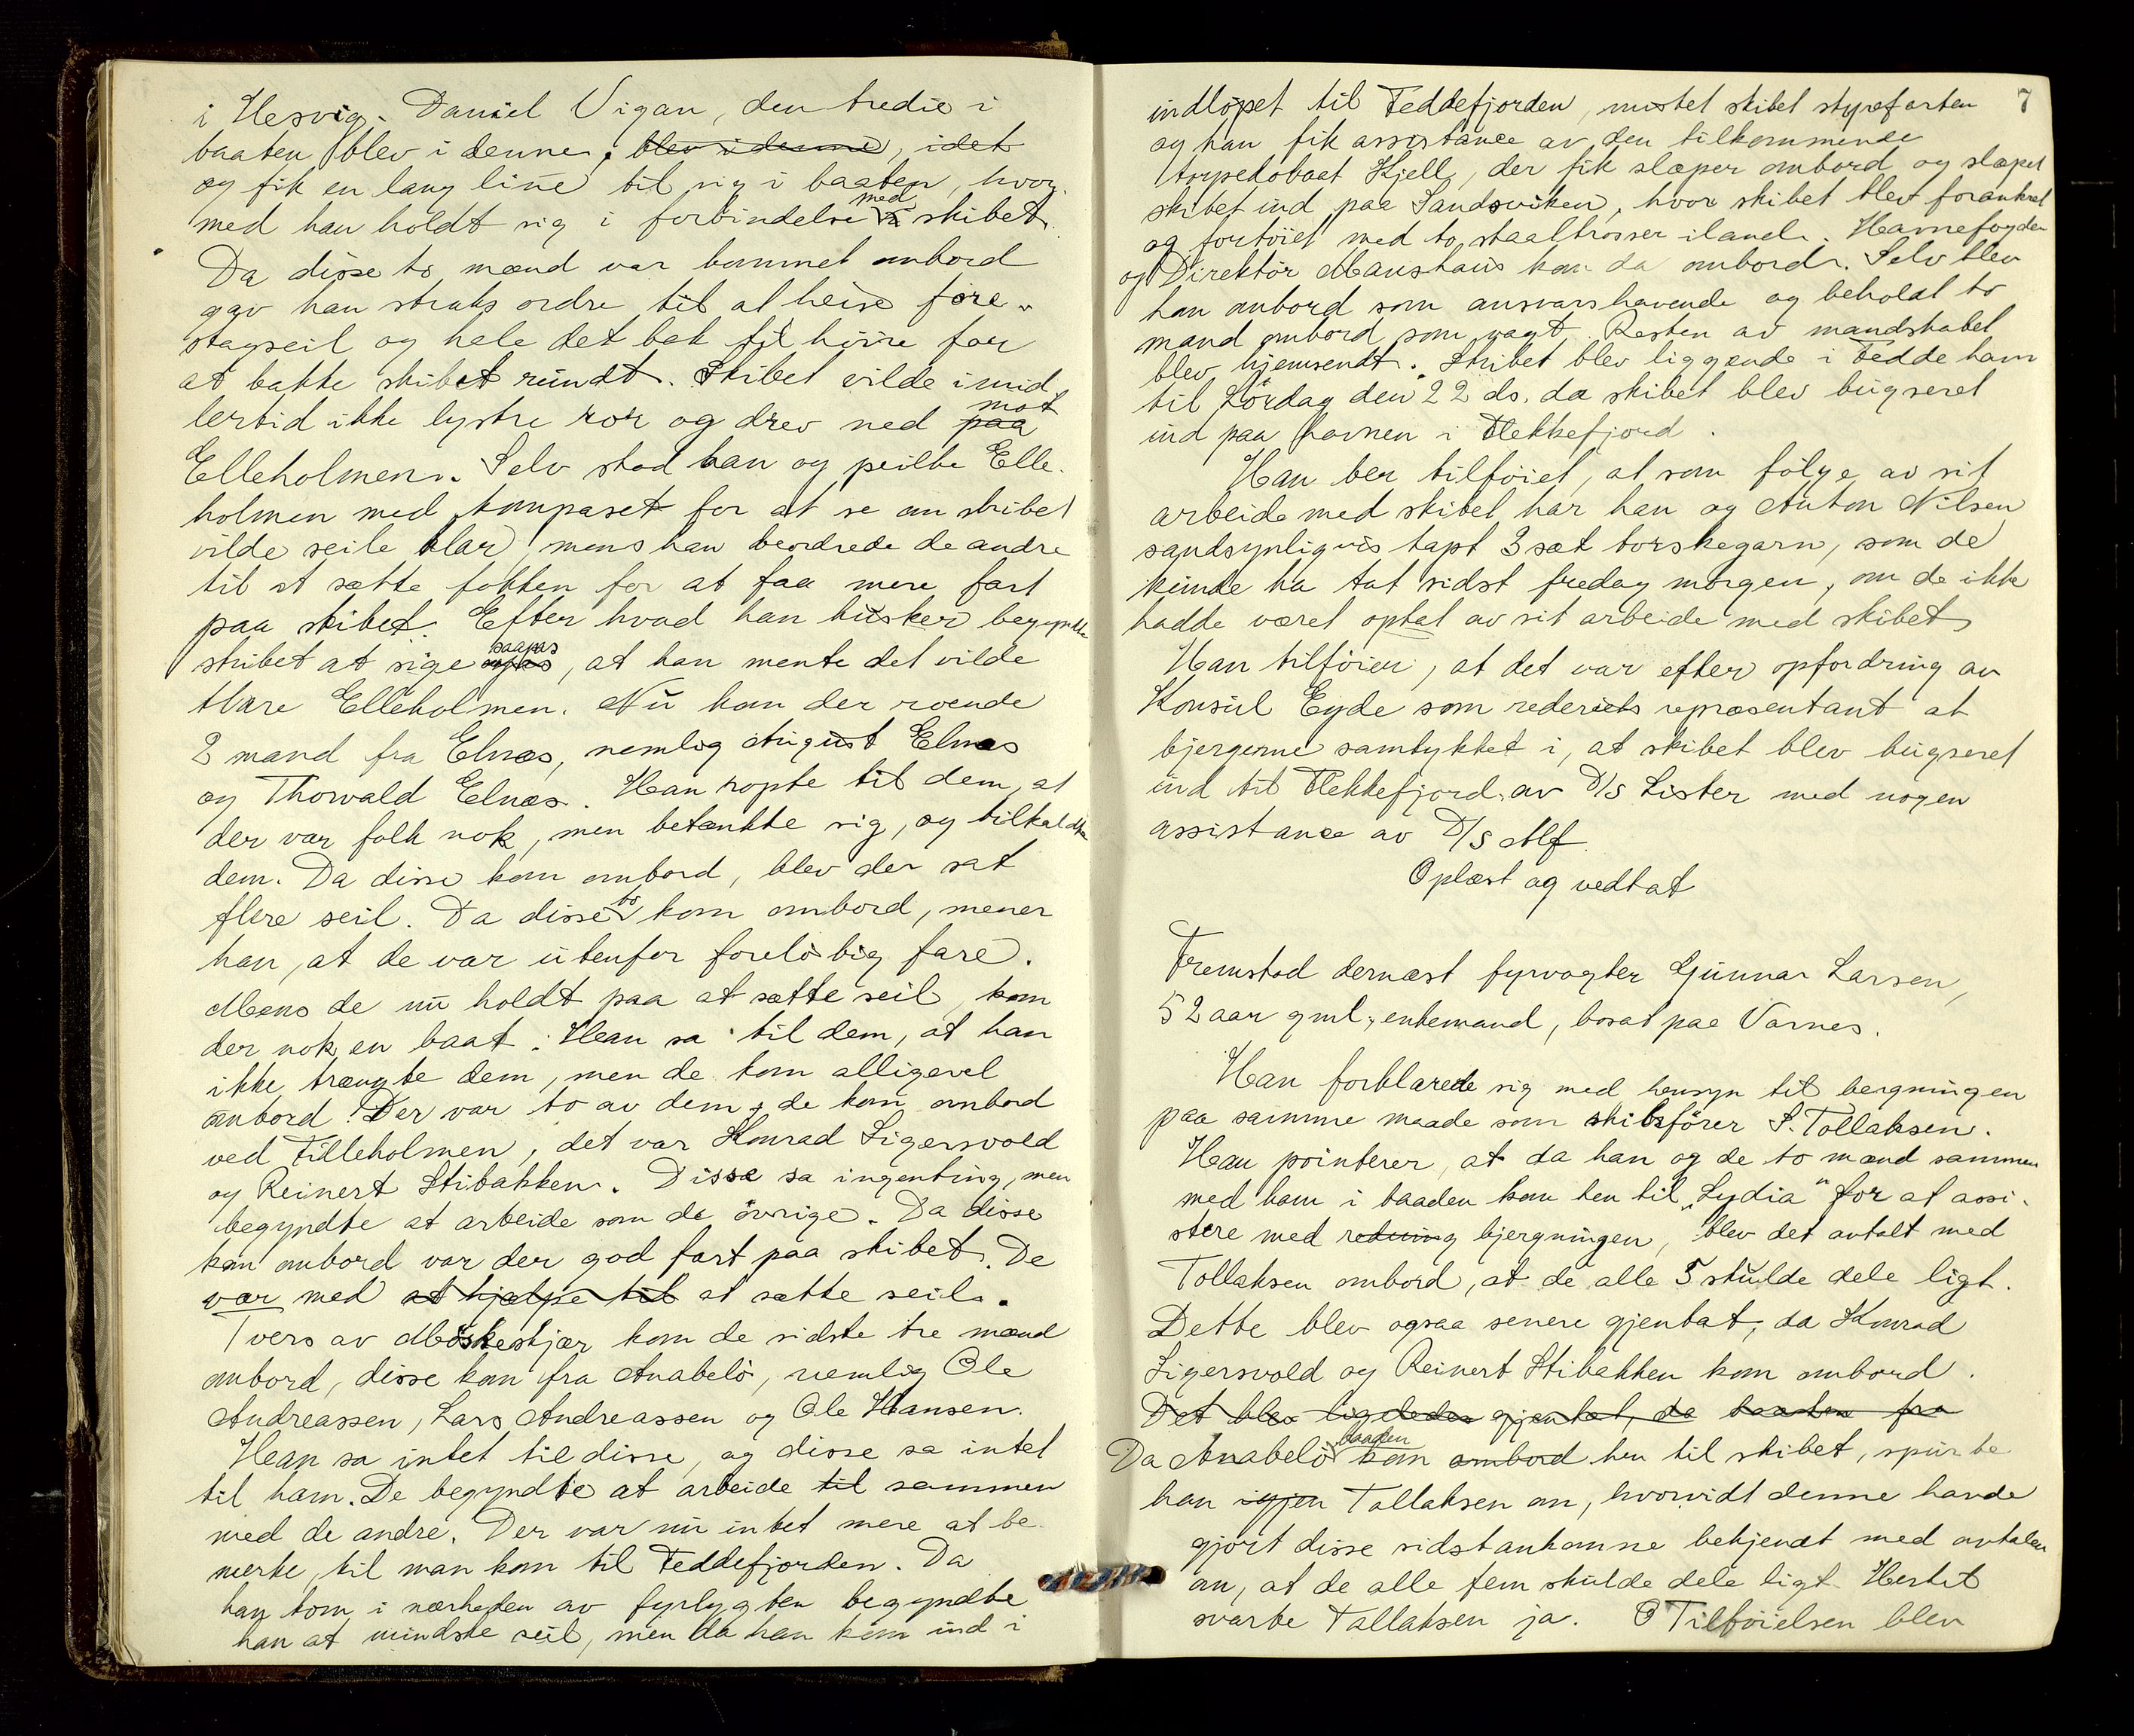 i Hesvig. Daniel Vigan, den tredie i
baaten blev i denne, blev i denne, idet
og fik en lang line til sig i baaten, hvor
med han holdt sig i forbindelse med skibet.
Da disse to mænd var kommet ombord
gav han straks ordre til at heise fore-
stagseil og hale det bak til høire for
at bakke skibet rundt. Skibet vilde imid
lertid ikke lystre ror og drev ned paa mot
Elleholmen. Selv stod han og peilte Elle-
holmen med kompaset for at se om skibet
vilde seile klar, mens han beordrede de andre
til at sætte fokken for at faa mere fart
paa skibet. Efter hvad han husker begyndte
skibet at sige saapas, at han mente det vilde
klare Elleholmen. Nu kom der roende
2 mand fra Elnæs, nemlig August Elnæs
og Thorvald Elnæs. Han ropte til dem, at
der var folk nok, men betænkte sig, og tilkaldte
dem. Da disse kom ombord, blev der sat
flere seil. Da disse to kom ombord, mener
han, at de var utenfor foreløbig fare.
Mens de nu holdt paa at sætte seil, kom
der nok en baat. Han sa til dem, at han
ikke trængte dem, men de kom alligevel
ombord. Der var to av dem, de kom ombord
ved Filleholmen, det var Konrad Sigersvold
og Reinert Stibakken. Disse sa ingenting, men
begyndte at arbeide som de øvrige. Da disse
kom ombord var der god fart paa skibet. De
var med at hjælpe til at sætte seil.
Tvers av Måskeskjær kom de sidste tre mænd
ombord, disse kom fra Anabelø, nemlig Ole
Andreassen, Lars Andreassen og Ole Hansen.
Han sa intet til disse, og disse sa intet
til ham. De begyndte at arbeide til sammen
med de andre. Der var nu intet mere at be-
merke, til man kom til Feddefjorden. Da
han kom i nærheden av fyrlygten begyndte
han at mindske seil, men da han kom ind i
7
indløpet til Feddefjorden, mistet skibet styrefarten
og han fik assistance av den tilkommende
torpedobaat Kjell, der fik slæper ombord og slæpet
skibet ind paa Sandsviken, hvor skibet blev forankret
og fortøiet med to staaltrosser iland. Havnefogden
og Direktør Maushaus kom da ombord. Selv blev
han ombord som ansvarshavende og beholdt to
mand ombord som vagt. Resten av mandskabet
blev hjemsendt. Skibet blev liggende i Fedde havn
til Lørdag den 22 ds. da skibet blev bugseret
ind paa havnen i Flekkefjord.
Han ber tilføiet, at som følge av sit
arbeide med skibet har han og Anton Nilsen
sandsynligvis tapt 3 sæt torskegarn, som de
kunde ha tat sidst fredag morgen, om de ikke
hadde været optat av sit arbeide med skibet.
Han tilføier, at det var efter opfordring av
Konsul Eyde som rederiets repræsentant at
bjergerne samtykket i, at skibet blev bugseret
ind til Flekkefjord av D/S Lister med nogen
assistance av D/S Alf.
Oplæst og vedtat
Fremstod dernæst fyrvogter Gunnar Larsen,
52 aar gml., enkemand, bosat paa Varnes.
Han forklarede sig med hensyn til bergningen
paa samme maade som skibsfører S. Tollaksen.
Han pointerer, at da han og de to mænd sammen
med ham i baaden kom hen til „Lydia" for at assi-
stere med redning bjergningen, blev det avtalt med
Tollaksen ombord, at de alle 5 skulde dele ligt.
Dette blev ogsaa senere gjentat, da Konrad
Sigersvold og Reinert Stibakken kom ombord.
Det blev ligeledes gjentat, da baaten fra
Da Anabelø baaden kom ombord hen til skibet, spurte
han igjen Tollaksen om, hvorvidt denne havde
gjort disse sidstankomne bekjendt med avtalen
om, at de alle fem skulde dele ligt. Hertil
svarte Tollaksen ja. Tilføielsen blev